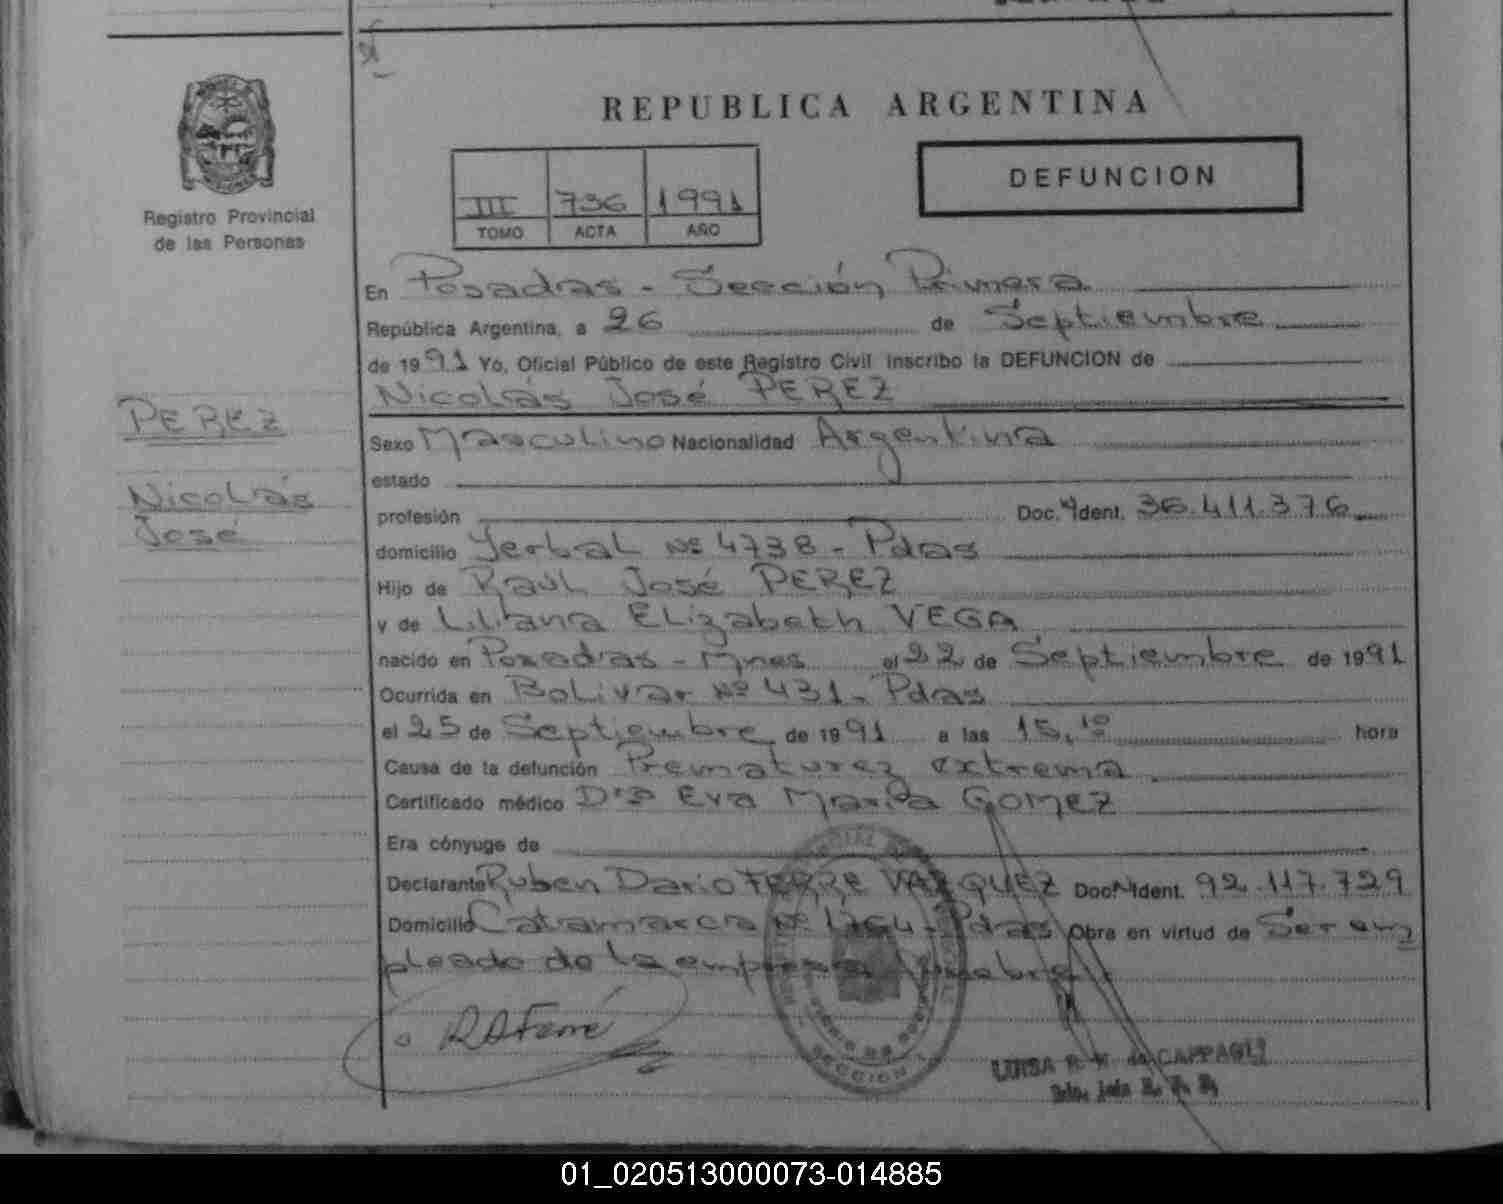 REPUBLICA ARGENTINA
Registro Provincial
de las Personas
DEFUNCION
III 736 1991
TOMO ACTA AÑO
En Posadas - Sección Primera
República Argentina, a 26 de Septiembre
de 1991 Yo, Oficial Público de este Registro Civil inscribo la DEFUNCION de
Nicolás José PEREZ
PEREZ
Nicolás
José
Sexo Masculino Nacionalidad Argentina
estado
profesión Doc. Ident. 36.411.376
domicilio Yerbal Nº 4738 - Pdas
Hijo de Raúl José PEREZ
y de Liliana Elizabeth VEGA
nacido en Posadas - Mnes el 22 de Septiembre de 1991
Ocurrida en Bolivar Nº 431 - Pdas
el 25 de Septiembre de 1991 a las 15,10 hora
Causa de la defunción Prematurez extrema
Certificado médico Dra Eva María GOMEZ
Era cónyuge de
Declarante Ruben Dario FERRE VAZQUEZ Doc. Ident. 92.117.729
Domicilio Catamarca Nº 1764 - Pdas Obra en virtud de Ser em
pleado de la empresa funebre
SECCION 1
LUISA R. M. de CAPPAGLI
01_020513000073-014885